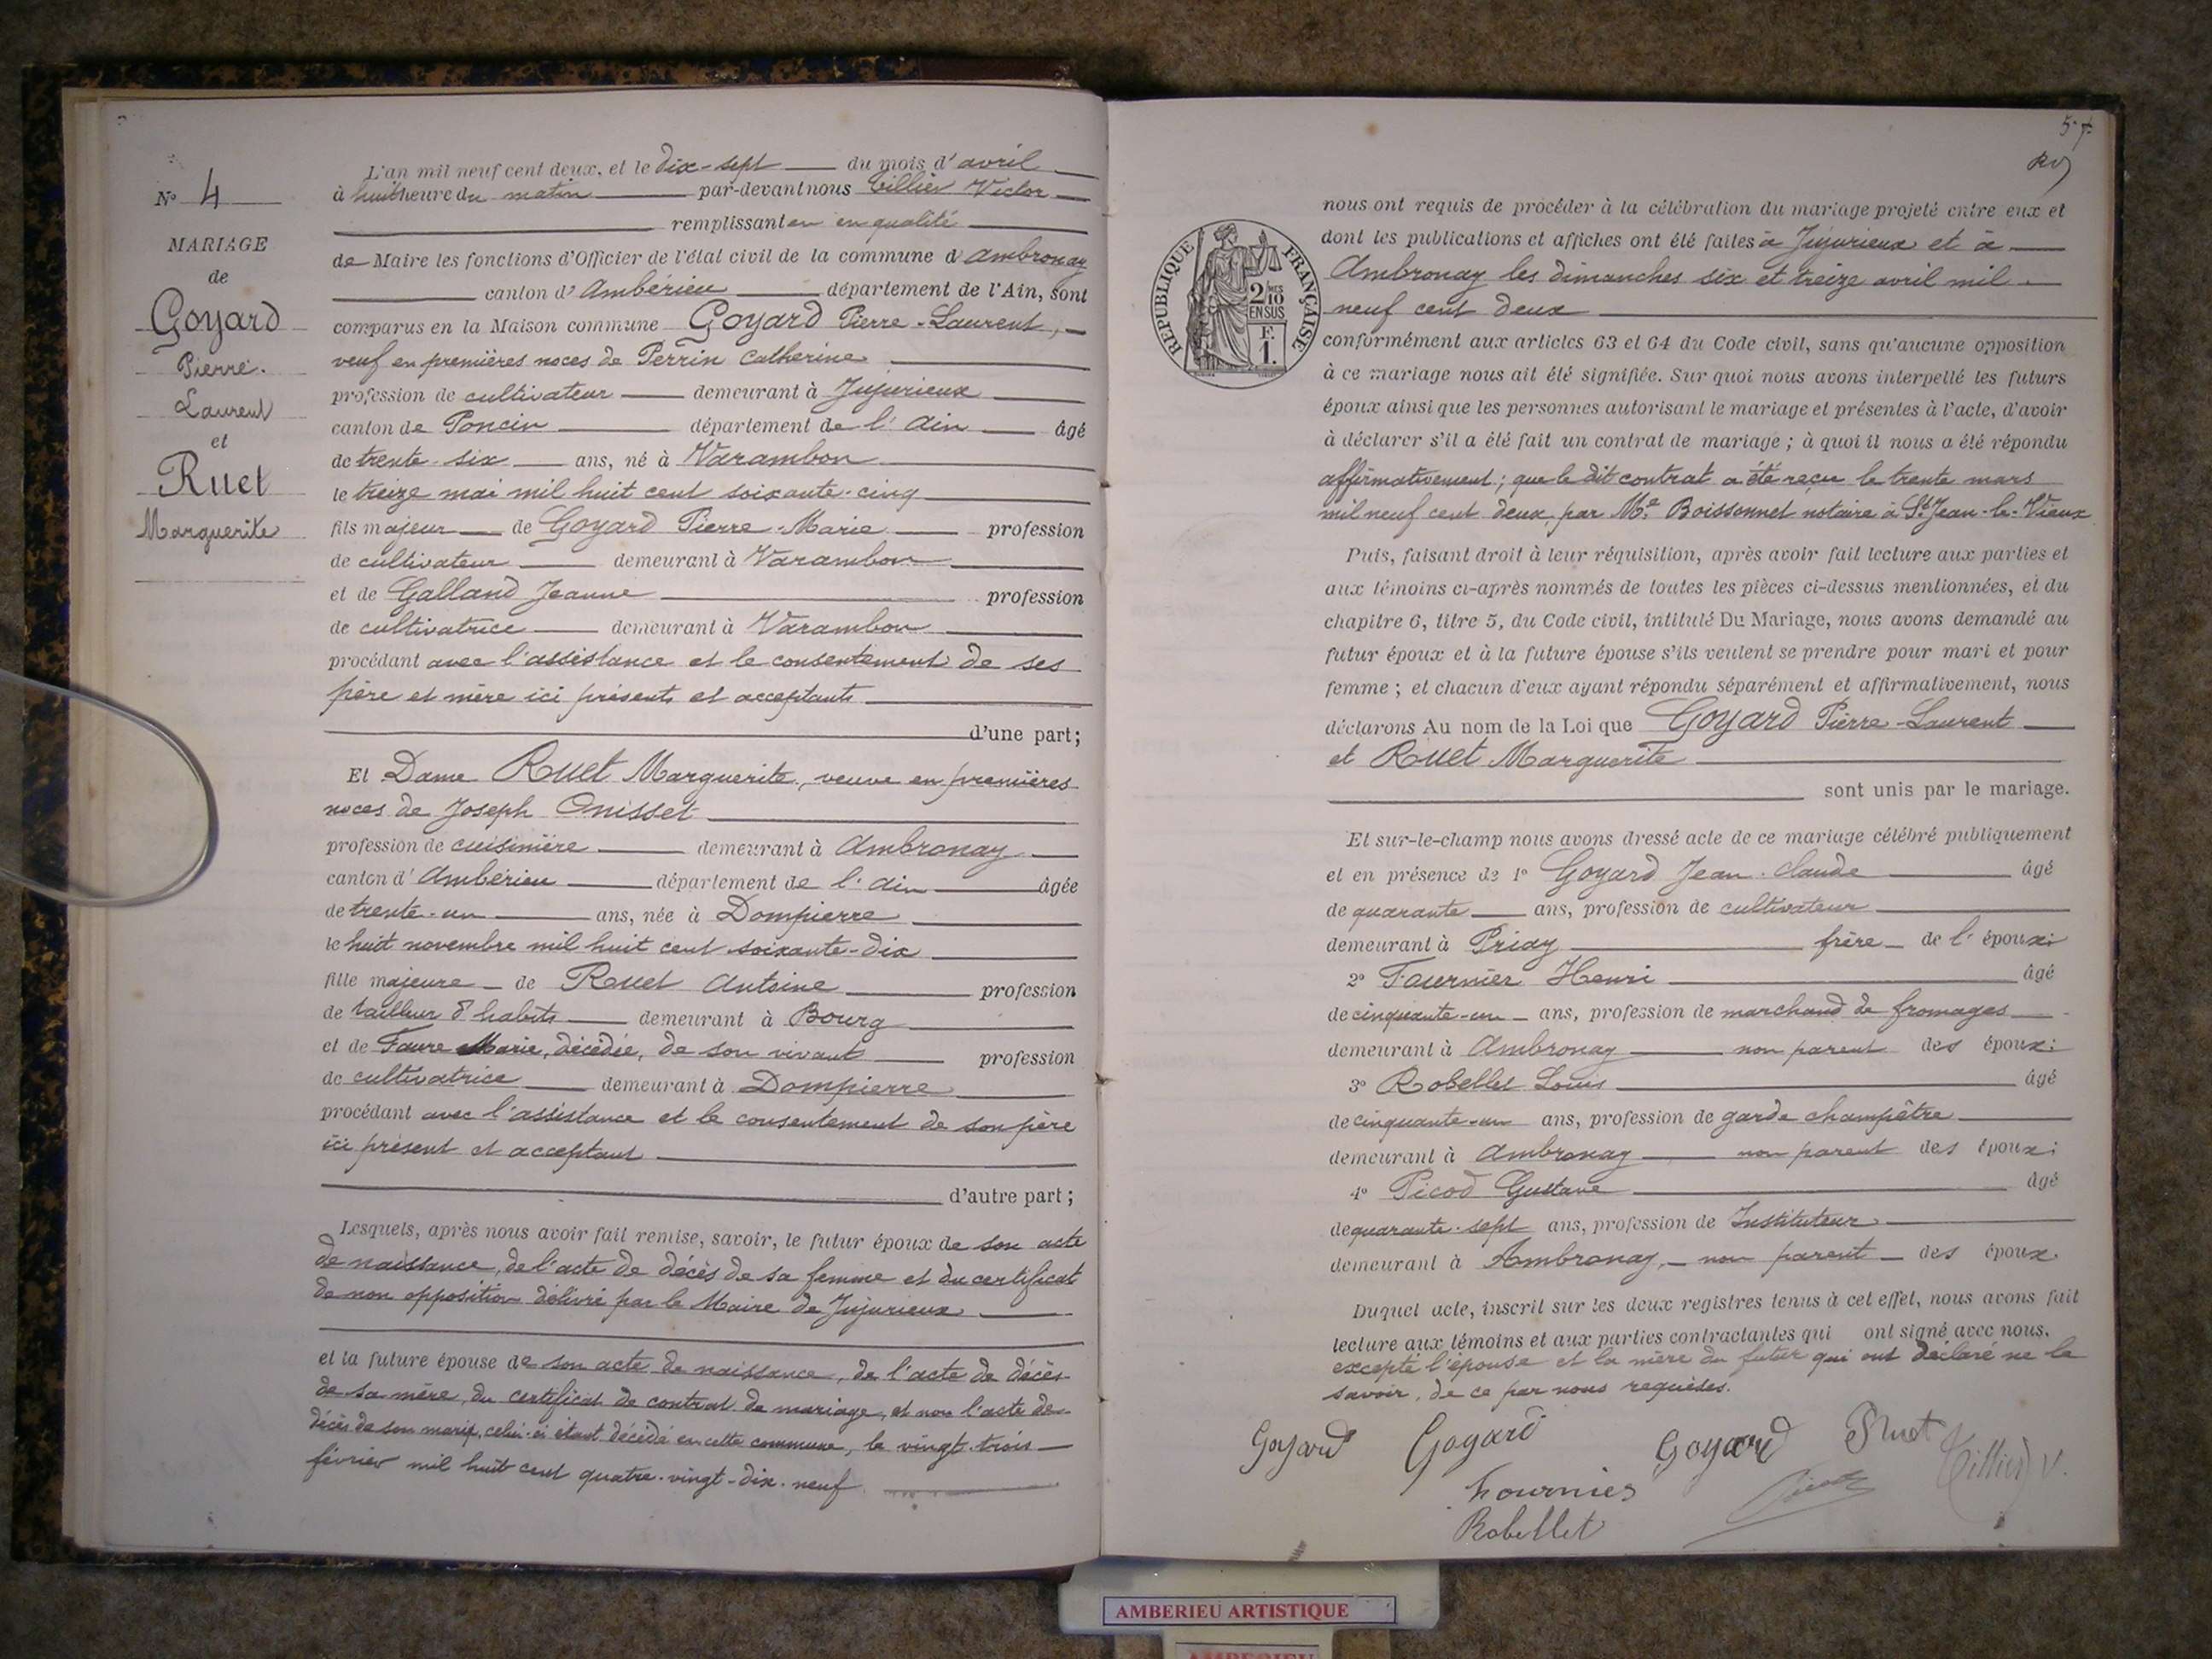 N° 4
MARIAGE
de
Goyard
Pierre.
Laurent
et
Ruet
Marguerite
L'an mil neuf cent deux, et le dix-sept du mois d'avril
à huit heure du matin par-devant nous Tillier Victor
remplissant en en qualité
de Maire les fonctions d'Officier de l'état civil de la commune d'Ambronay
canton d'Ambérieu département de l'Ain, sont
comparus en la Maison commune Goyard Pierre-Laurent,
veuf en premières noces de Perrin Catherine
profession de cultivateur demeurant à Jujurieux
canton de Poncin département de l'Ain âgé
de trente-six ans, né à Varambon
le treize mai mil huit cent soixante-cinq
fils majeur de Goyard Pierre-Marie profession
de cultivateur demeurant à Varambon
et de Galland Jeanne profession
de cultivatrice demeurant à Varambon
procédant avec l'assistance et le consentement de ses
père et mère ici présents et acceptants
d'une part;
Et Dame Ruet Marguerite, veuve en premières
noces de Joseph Onisset
profession de cuisinière demeurant à Ambronay
canton d'Ambérieu département de l'Ain âgée
de trente-un ans, née à Dompierre
le huit novembre mil huit cent soixante-dix
fille majeure de Ruet Antoine profession
de tailleur d'habits demeurant à Bourg
et de Faure Marie, décédée, de son vivant profession
de cultivatrice demeurant à Dompierre
procédant avec l'assistance et le consentement de son père
ici présent et acceptant
d'autre part;
Lesquels, après nous avoir fait remise, savoir, le futur époux de son acte
de naissance, de l'acte de décès de sa femme et du certificat
de non opposition délivré par le Maire de Jujurieux
et la future épouse de son acte de naissance, de l'acte de décès
de sa mère, du certificat de contrat de mariage, et non l'acte de
décès de son marie, celui-ci étant décédé en cette commune, le vingt-trois
février mil huit cent quatre-vingt-dix-neuf
57
RÉPUBLIQUE FRANÇAISE
2/10
EN SUS
F.
1.
nous ont requis de procéder à la célébration du mariage projeté entre eux et
dont les publications et affiches ont été faites à Jujurieux et à
Ambronay les dimanches six et treize avril mil
neuf cent deux
conformément aux articles 63 et 64 du Code civil, sans qu'aucune opposition
à ce mariage nous ait été signifiée. Sur quoi nous avons interpellé les futurs
époux ainsi que les personnes autorisant le mariage et présentes à l'acte, d'avoir
à déclarer s'il a été fait un contrat de mariage; à quoi il nous a été répondu
affirmativement; que le dit contrat a été reçu le trente mars
mil neuf cent deux, par Me Boissonnet notaire à St Jean-le-Vieux
Puis, faisant droit à leur réquisition, après avoir fait lecture aux parties et
aux témoins ci-après nommés de toutes les pièces ci-dessus mentionnées, et du
chapitre 6, titre 5, du Code civil, intitulé Du Mariage, nous avons demandé au
futur époux et à la future épouse s'ils veulent se prendre pour mari et pour
femme; et chacun d'eux ayant répondu séparément et affirmativement, nous
déclarons Au nom de la Loi que Goyard Pierre-Laurent
et Ruet Marguerite
sont unis par le mariage.
Et sur-le-champ nous avons dressé acte de ce mariage célébré publiquement
et en présence de 1° Goyard Jean-Claude âgé
de quarante ans, profession de cultivateur
demeurant à Priay frère de l'époux;
2° Fournier Henri âgé
de cinquante-un ans, profession de marchand de fromages
demeurant à Ambronay non parent des époux:
3° Robellet Louis âgé
de cinquante-un ans, profession de garde champêtre
demeurant à Ambronay non parent des époux;
4° Picod Gustave âgé
de quarante-sept ans, profession de Instituteur
demeurant à Ambronay, non parent des époux.
Duquel acte, inscrit sur les deux registres tenus à cet effet, nous avons fait
lecture aux témoins et aux parties contractantes qui ont signé avec nous.
excepté l'épouse et la mère du futur qui ont déclaré ne le
savoir, de ce par nous requises.
Goyard Goyard Goyard Ruet Tillier V.
Fournier Picod
Robellet
AMBERIEU ARTISTIQUE
AMBERIEU